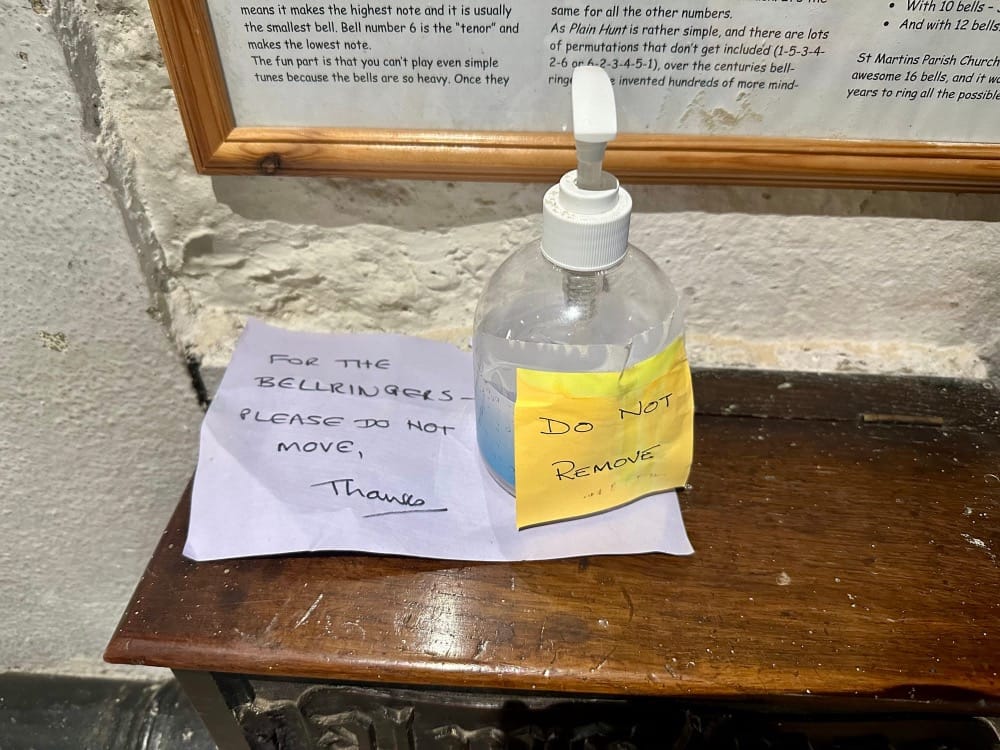 means it makes the highest note and it is usually
the smallest bell. Bell number 6 is the "tenor" and
makes the lowest note.
The fun part is that you can't play even simple
tunes because the bells are so heavy. Once they
same for all the other numbers.
As Plain Hunt is rather simple, and there are lots
of permutations that don't get included (1-5-3-4-
2-6 or 6-2-3-4-5-1), over the centuries bell-
invented hundreds of more mind-
• With 10 bells -
• And with 12 bells
St Martins Parish Church
awesome 16 bells, and it
years to ring all the possible
FOR THE
BELLRINGERS-
PLEASE DO NOT
MOVE,
Thanks
DO NOT
REMOVE